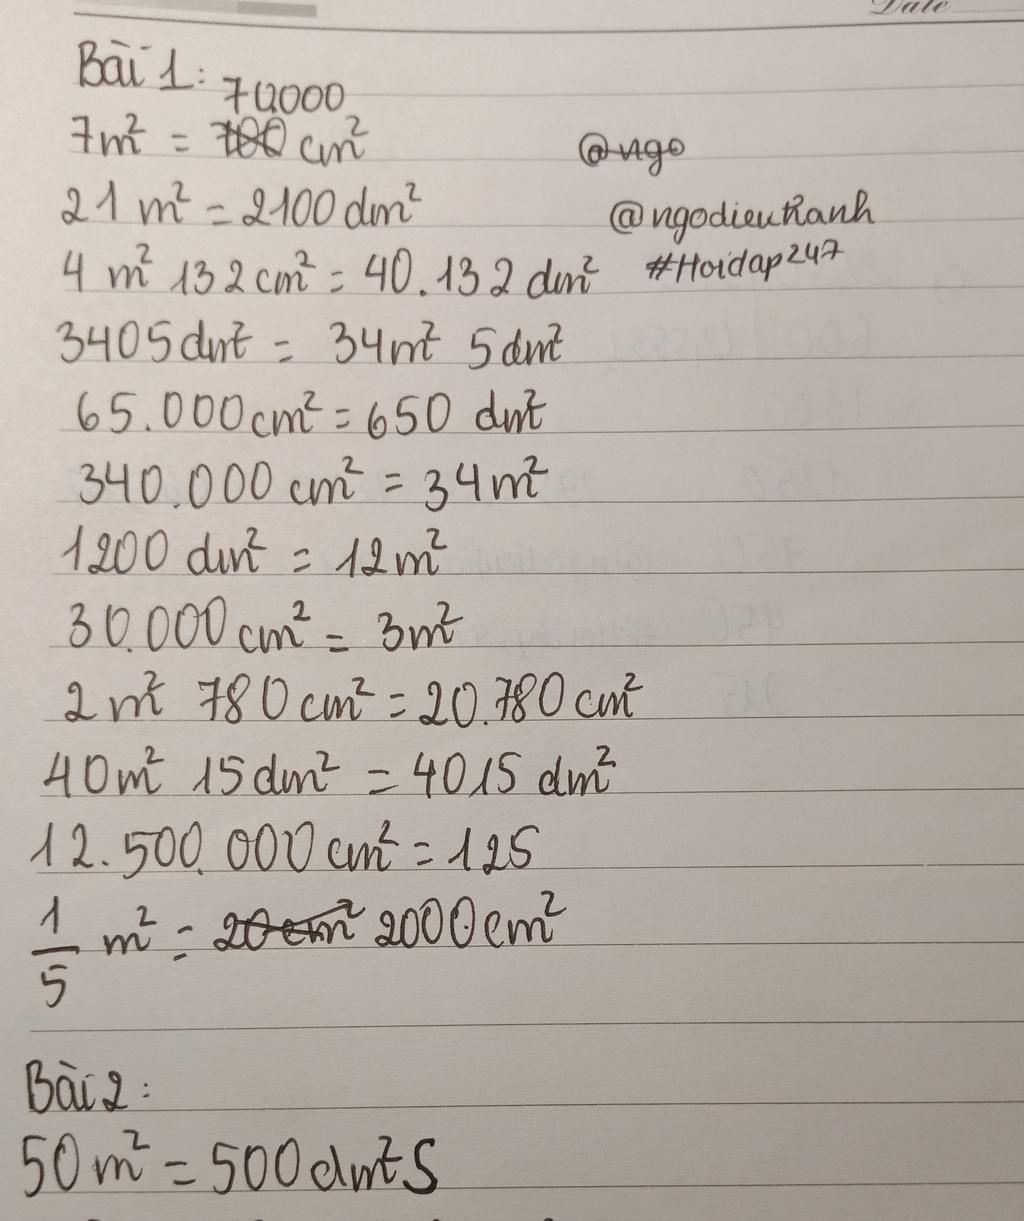 Date
Bài 1:
70000
7m² = 700 cm²
@ngo
21 m² = 2100 dm²
@ngodieukhanh
4 m² 132 cm² = 40.132 dm²
#Hoidap247
3405 dm² = 34m² 5dm²
65.000 cm² = 650 dm²
340.000 cm² = 34m²
1200 dm² = 12m²
30.000 cm² = 3m²
2 m² 780 cm² = 20.780 cm²
40m² 15dm² = 4015 dm²
12.500.000 cm² = 125
1/5 m² = 20 cm² 2000cm²
Bài 2:
50 m² = 500 dm² S